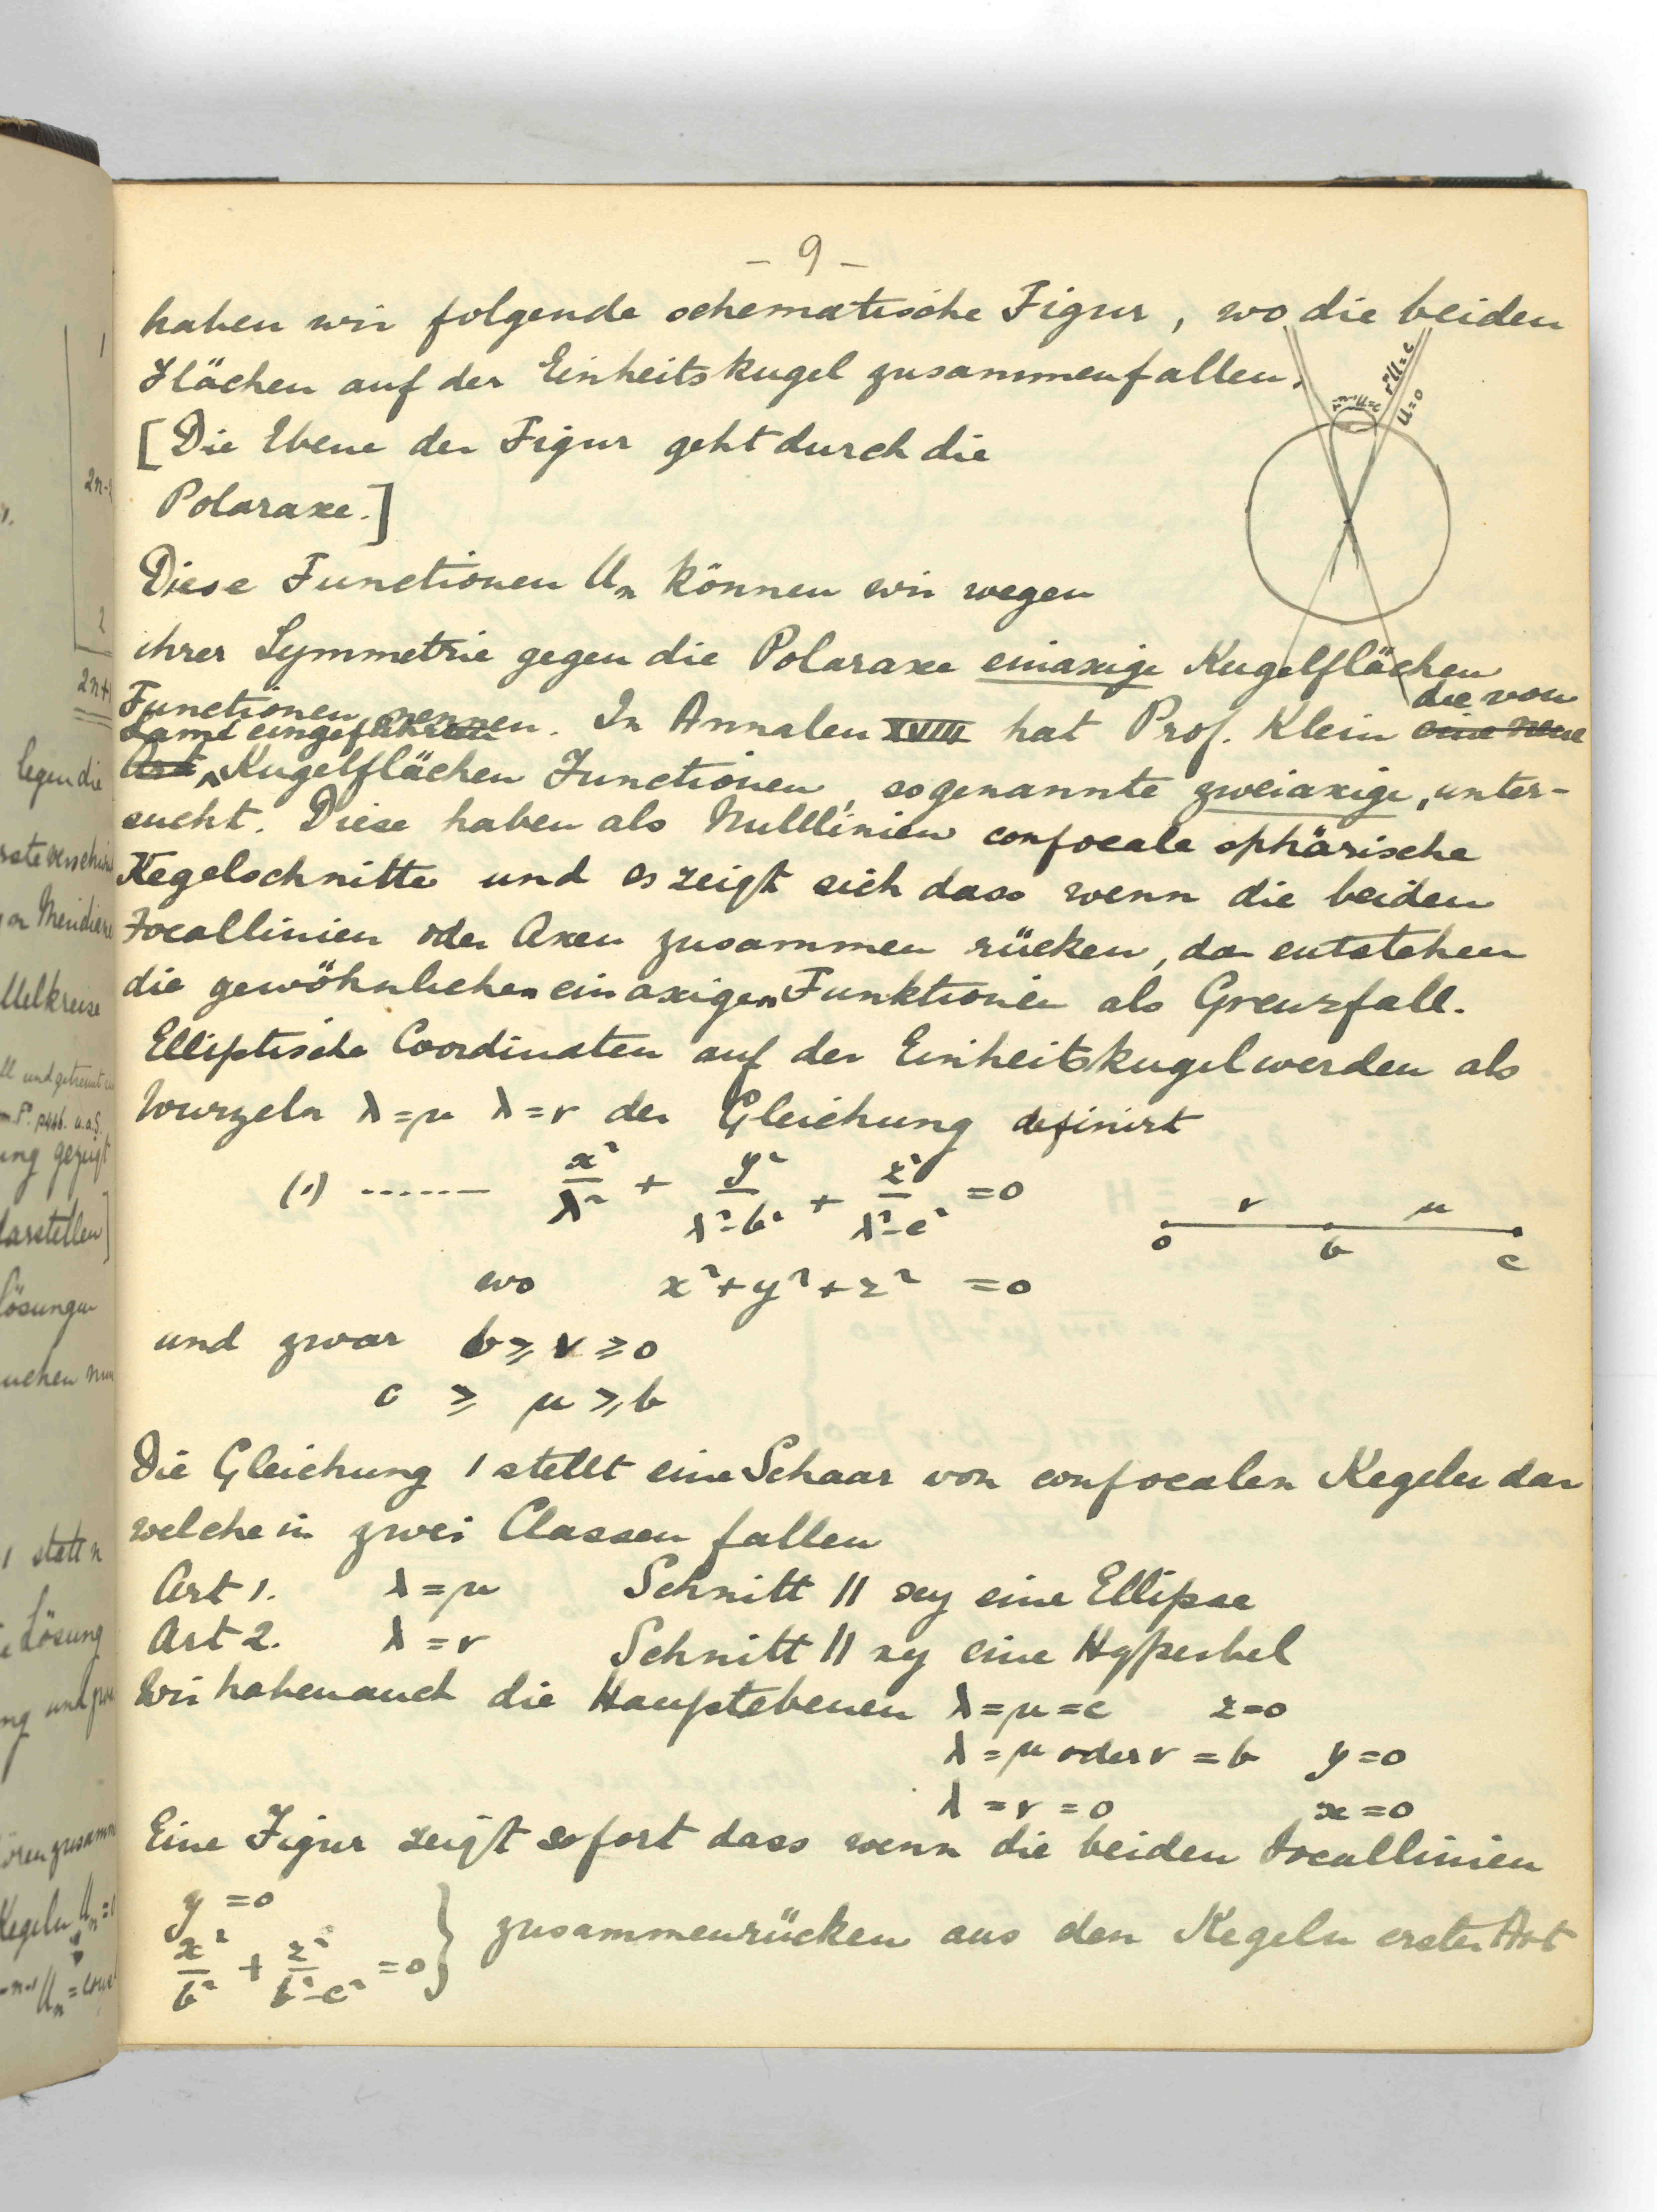 - 9 -
haben wir folgende schematische Figur, wo die beiden
Flächen auf der Einheitskugel zusammenfallen.
[Die Ebene der Figur geht durch die
Polaraxe.]
U=0
Diese Functionen Uₙ können wir wegen
ihrer Symmetrie gegen die Polaraxe einaxige Kugelflächen
Functionen nennen. In Annalen XVIII hat Prof. Klein eine neue die von
Art Lamé eingeführten Kugelflächen Functionen, sogenannte zweiaxige, unter-
sucht. Diese haben als Nulllinien confocale sphärische
Kegelschnitte und es zeigt sich dass wenn die beiden
Focallinien oder Axen zusammen rücken, da entstehen
die gewöhnlichen einaxigen Funktionen als Grenzfall.
Elliptische Coordinaten auf der Einheitskugel werden als
Wurzeln λ=μ λ=ν der Gleichung definirt
(1) ------- x²/λ² + y²/λ²-b² + z²/λ²-c² =0
ν μ
0 b c
wo x²+y²+z² =0
und zwar b≥ν≥0
c ≥ μ ≥ b
Die Gleichung 1 stellt eine Schaar von confocalen Kegeln dar
welche in zwei Classen fallen
Art 1. λ=μ Schnitt || xy eine Ellipse
Art 2. λ=ν Schnitt || xy eine Hyperbel
Wir haben auch die Hauptebenen λ=μ=c z=0
λ=μ oder ν=b y=0
λ=ν=0 x=0
Eine Figur zeigt sofort dass wenn die beiden Focallinien
y=0
x²/b² + z²/b²-c² =0 } zusammenrücken aus den Kegeln erster Art